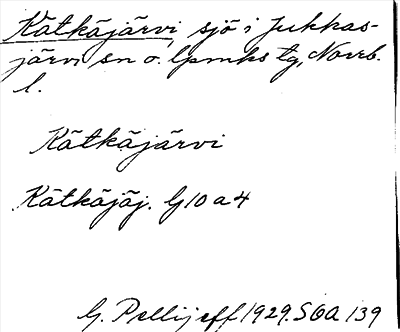 Kätkäjärvi, sjö i Jukkas-
järvi sn o. lpmks tg, Norrb.
l.
Kätkäjärvi
Kätkäjäj. G10a4
G. Pellijeff 1929. SOA 139